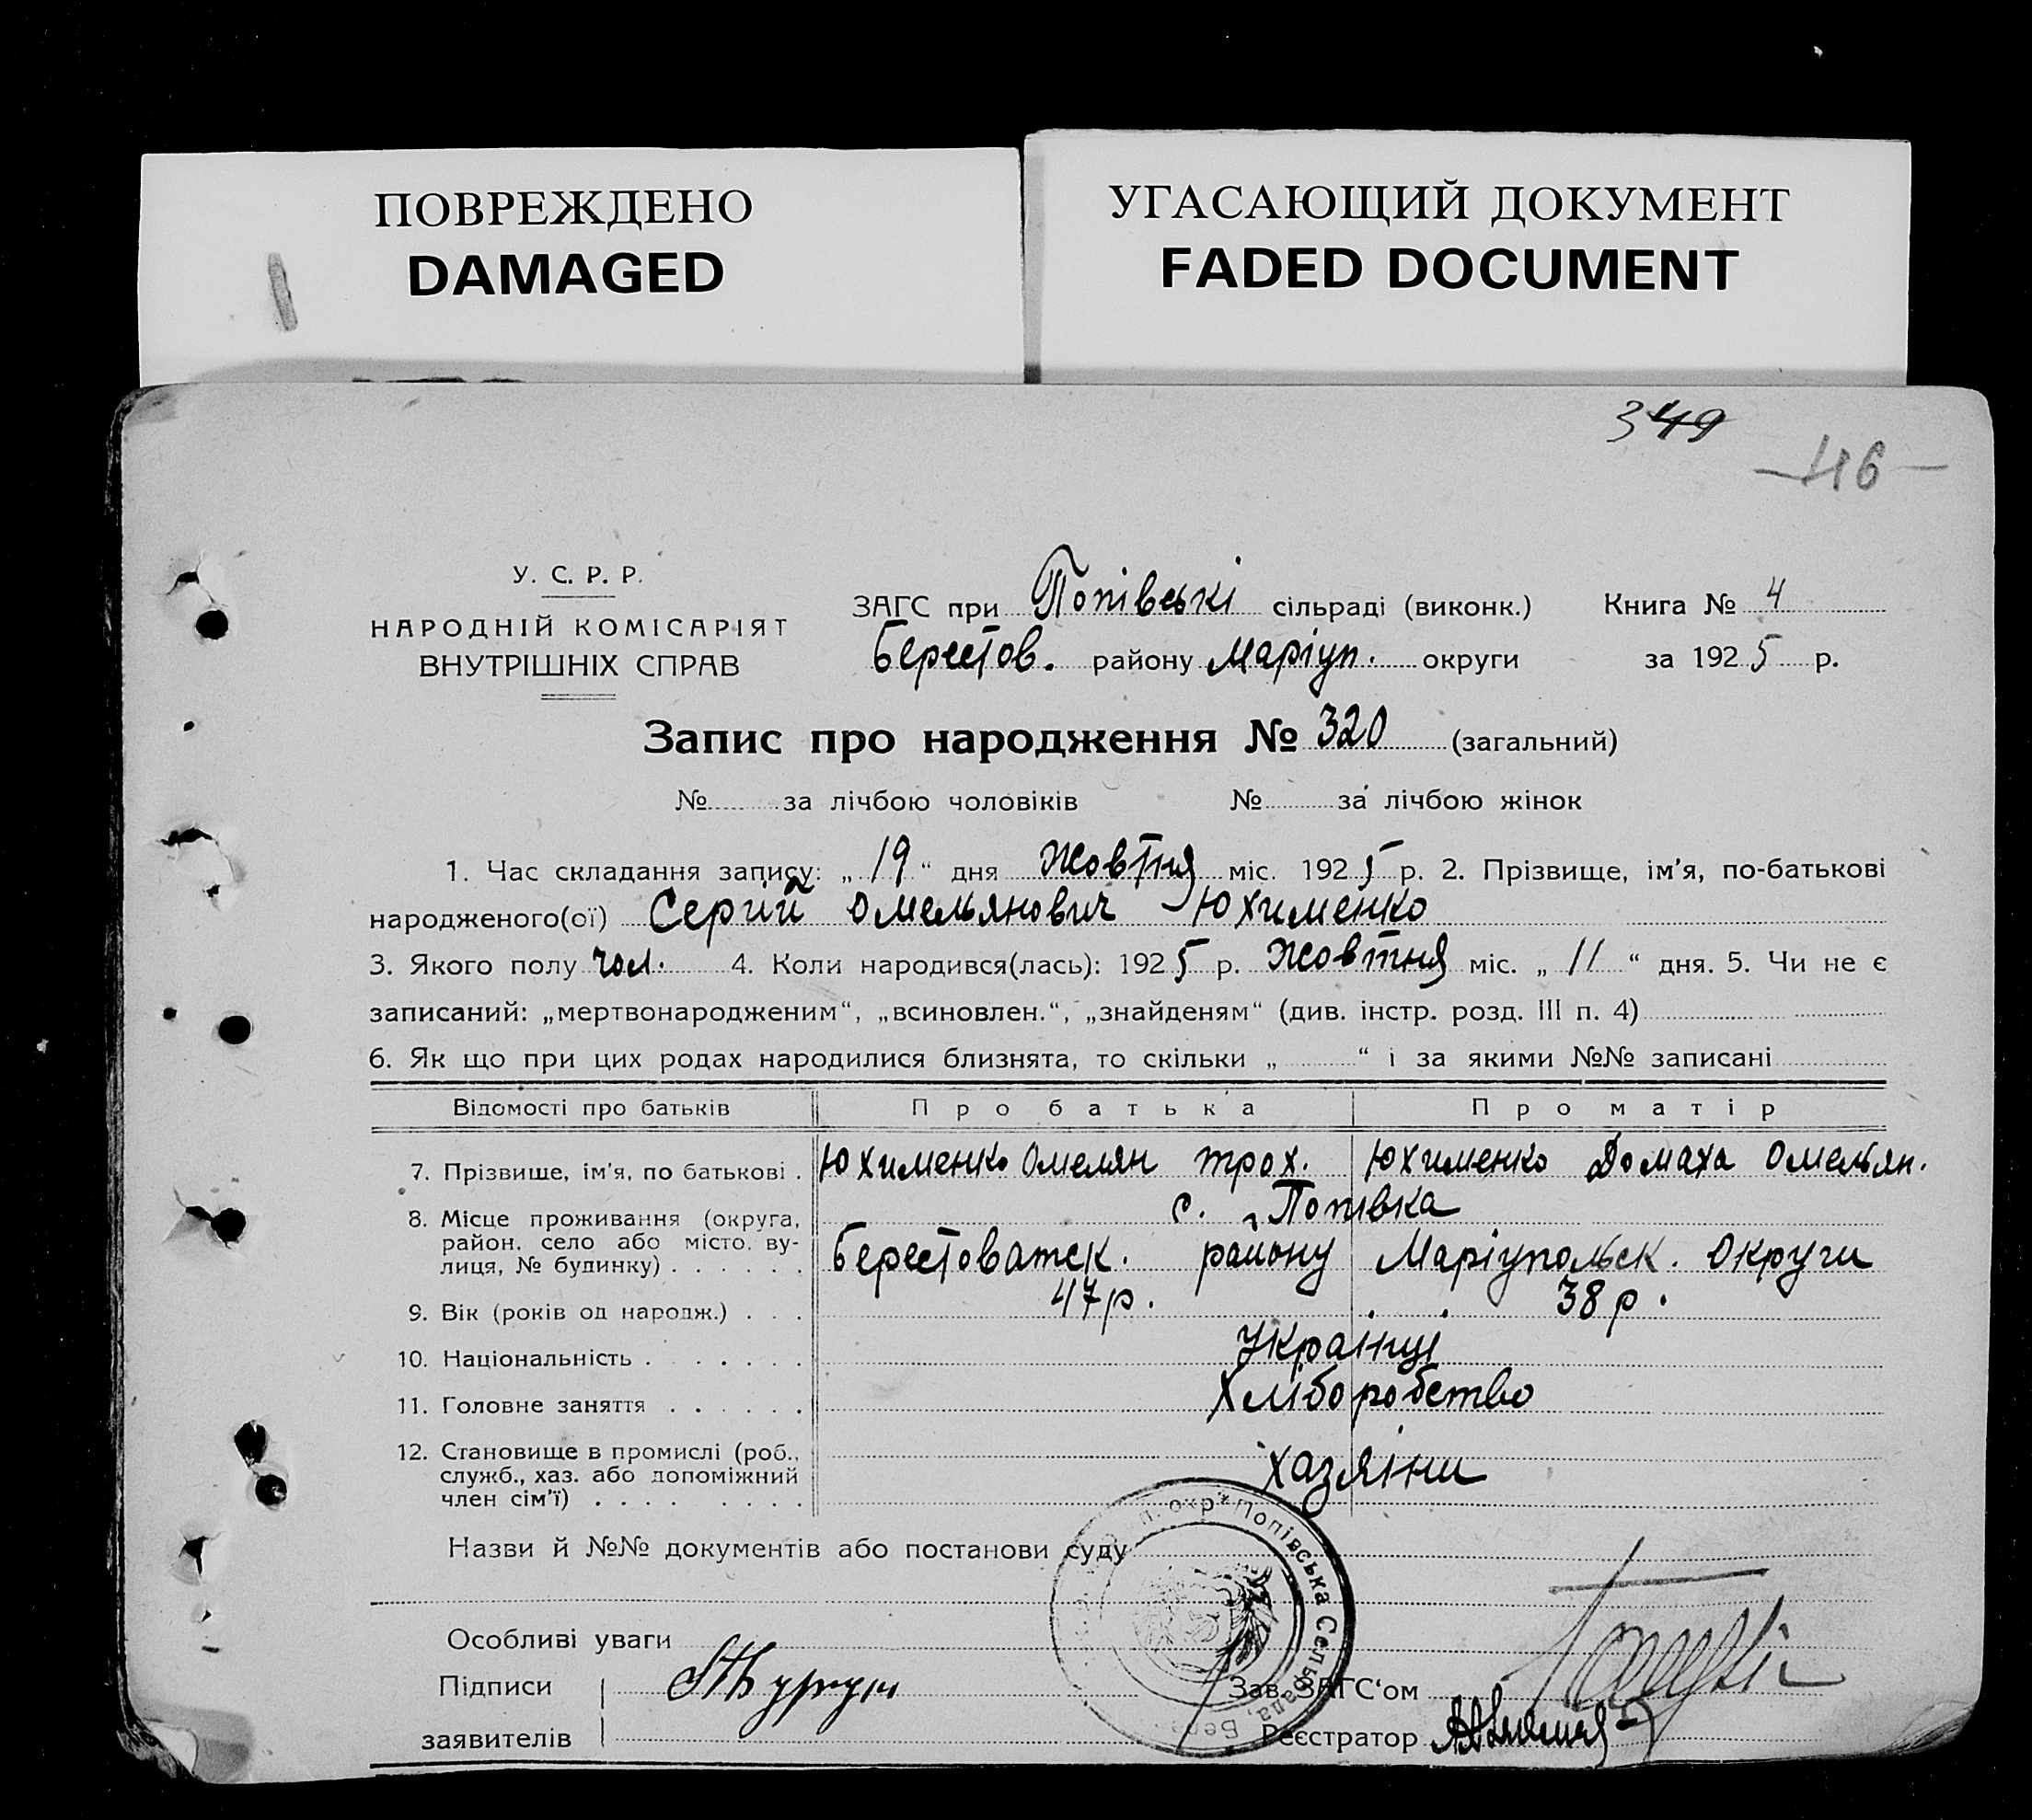 ПОВРЕЖДЕНО
DAMAGED
УГАСАЮЩИЙ ДОКУМЕНТ
FADED DOCUMENT
349
-116-
У. С. Р. Р.
НАРОДНІЙ КОМІСАРІЯТ
ВНУТРІШНІХ СПРАВ
ЗАГС при Попівські сільраді (виконк.) Книга № 4
Берестов. району Маріуп. округи за 1925 р.
Запис про народження № 320 (загальний)
№ за лічбою чоловіків № за лічбою жінок
1. Час складання запису: „19“ дня Жовтня міс. 1925 р. 2. Прізвище, ім'я, по-батькові
народженого(ої) Сергій Омельянович Юхименко
3. Якого полу чол. 4. Коли народився(лась): 1925 р. Жовтня міс. „11“ дня. 5. Чи не є
записаний: „мертвонародженим“, „всиновлен.“, „знайденям“ (див. інстр. розд. III п. 4)
6. Як що при цих родах народилися близнята, то скільки „ “ і за якими №№ записані
Відомості про батьків Про батька Про матір
7. Прізвище, ім'я, по батькові . Юхименко Омелян трох. Юхименко Домаха Омельян.
8. Місце проживання (округа, район, село або місто, вулиця, № будинку) . . . . . .
с. Попівка
Берестоватск. району Маріупольск. Округи
9. Вік (років од народж.) . . . 47 р. 38 р.
10. Національність . . . . . . . Українці
11. Головне заняття . . . . . . Хліборобство
12. Становище в промислі (роб., служб., хаз. або допоміжний член сім'ї) . . . . . . . . Хазяіни
Назви й №№ документів або постанови суду
окр. Попівська Сельрада, Бер
Особливі уваги
Підписи
заявителів
Зав. ЗАГС'ом
Реєстратор